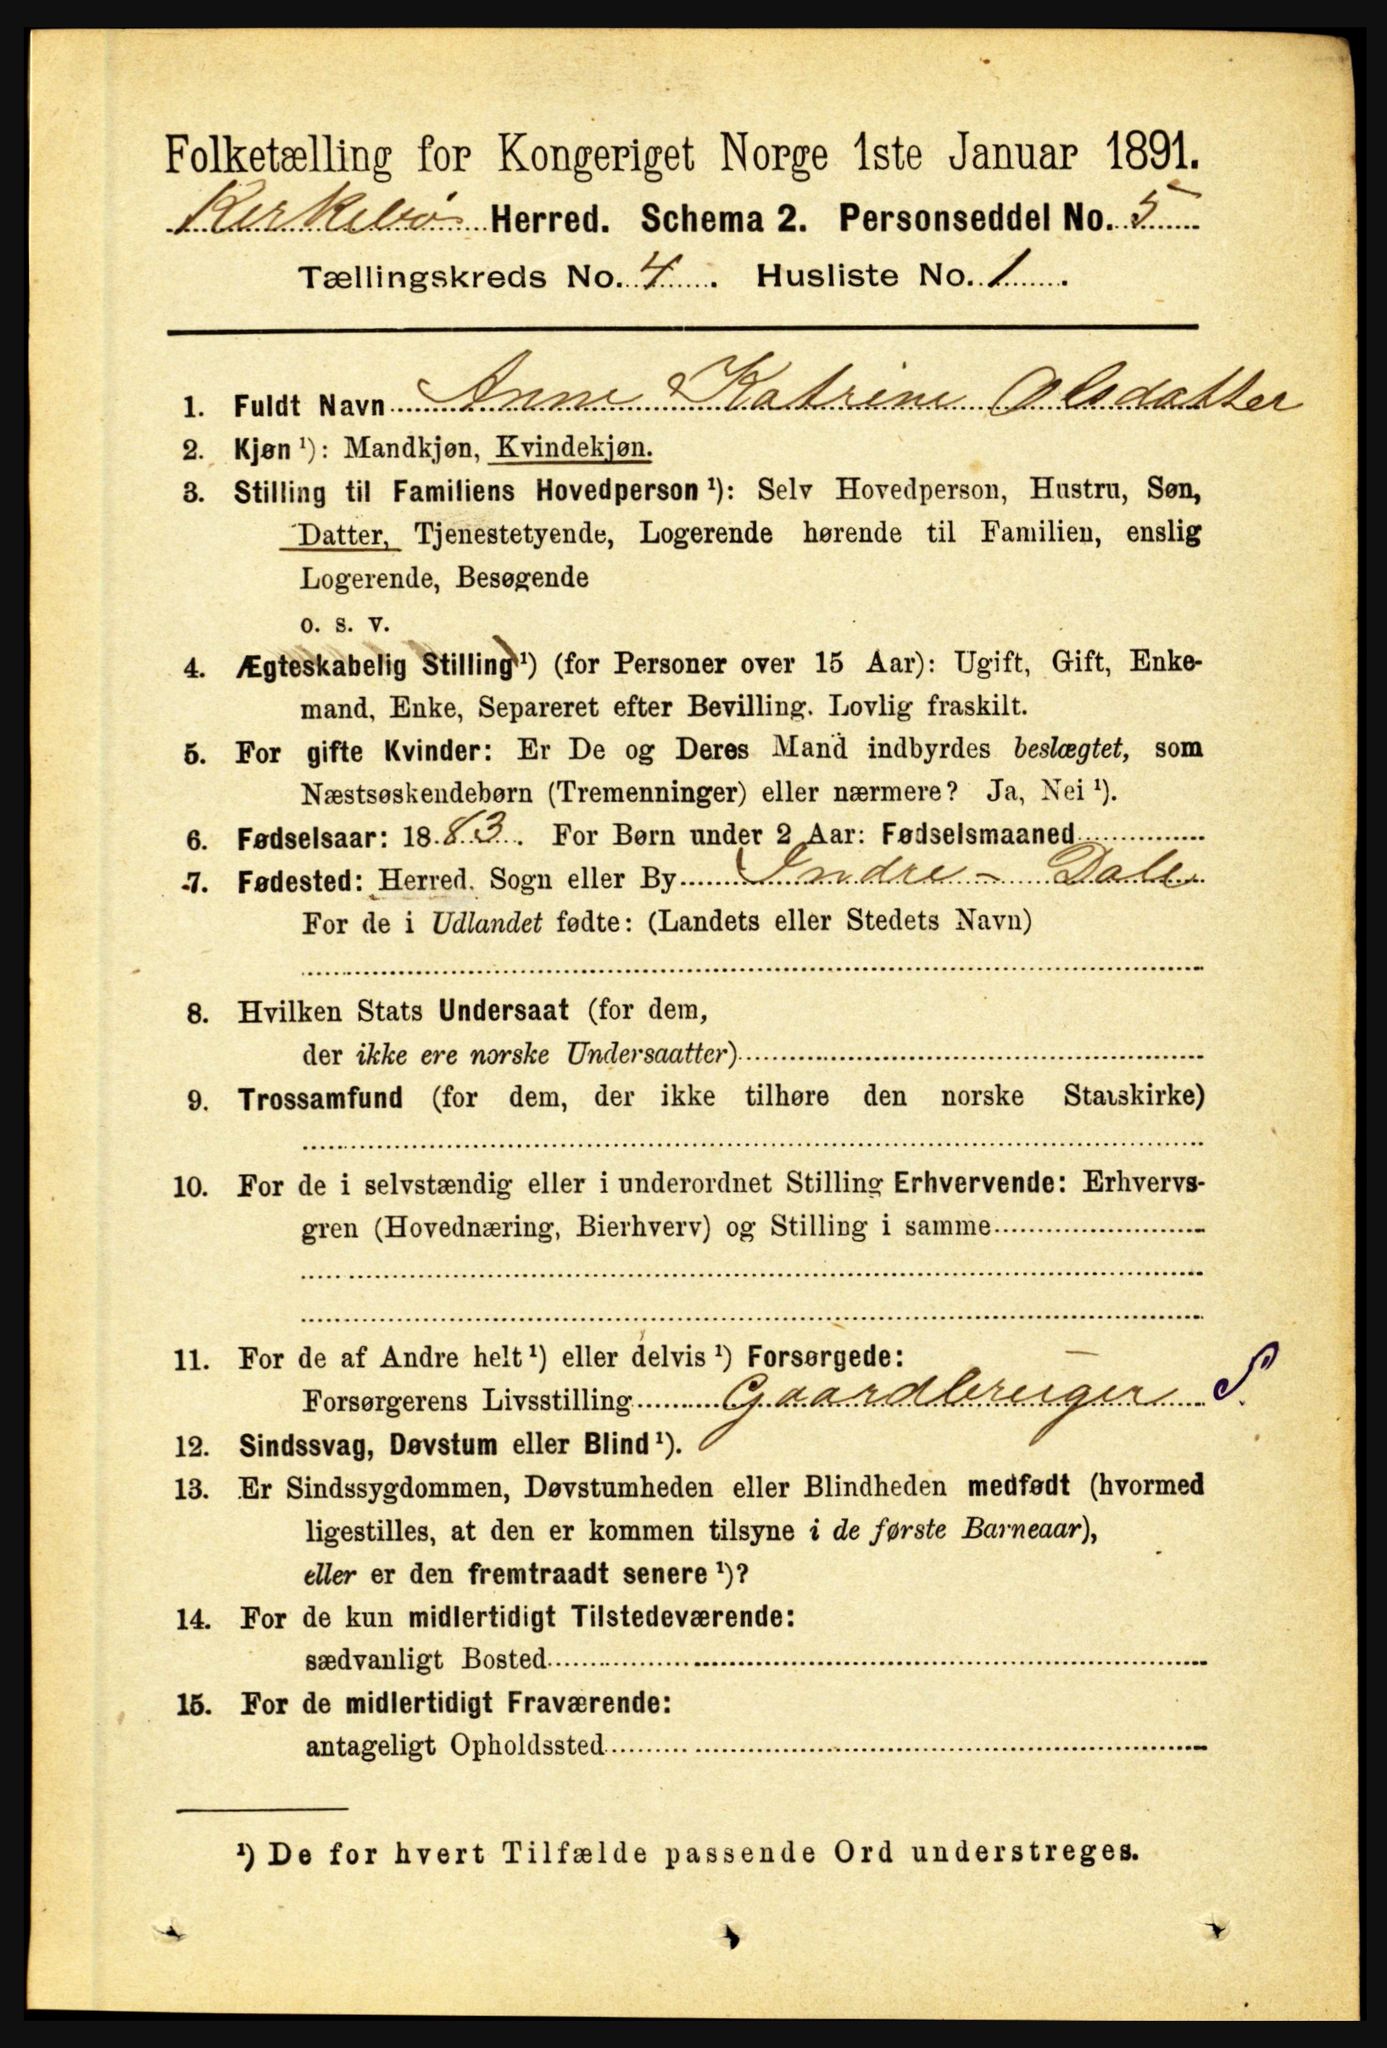 Folketælling for Kongeriget Norge 1ste Januar 1891.
Kirkebø Herred. Schema 2. Personseddel No. 5
Tællingskreds No. 4. Husliste No. 1.
1. Fuldt Navn Anne Katrine Olsdatter
2. Kjøn ¹): Mandkjøn, Kvindekjøn.
3. Stilling til Familiens Hovedperson ¹): Selv Hovedperson, Hustru, Søn,
Datter, Tjenestetyende, Logerende hørende til Familien, enslig
Logerende, Besøgende
o. s. v.
4. Ægteskabelig Stilling ¹) (for Personer over 15 Aar): Ugift, Gift, Enke-
mand, Enke, Separeret efter Bevilling. Lovlig fraskilt.
5. For gifte Kvinder: Er De og Deres Mand indbyrdes beslægtet, som
Næstsøskendebørn (Tremenninger) eller nærmere? Ja, Nei ¹).
6. Fødselsaar: 1883. For Børn under 2 Aar: Fødselsmaaned
7. Fødested: Herred, Sogn eller By Indre - Dale
For de i Udlandet fødte: (Landets eller Stedets Navn)
8. Hvilken Stats Undersaat (for dem,
der ikke ere norske Undersaatter)
9. Trossamfund (for dem, der ikke tilhøre den norske Statskirke)
10. For de i selvstændig eller i underordnet Stilling Erhvervende: Erhvervs-
gren (Hovednæring, Bierhverv) og Stilling i samme
11. For de af Andre helt ¹) eller delvis ¹) Forsørgede:
Forsørgerens Livsstilling Gaardbruger S.
12. Sindssvag, Døvstum eller Blind ¹).
13. Er Sindssygdommen, Døvstumheden eller Blindheden medfødt (hvormed
ligestilles, at den er kommen tilsyne i de første Barneaar),
eller er den fremtraadt senere ¹)?
14. For de kun midlertidigt Tilstedeværende:
sædvanligt Bosted
15. For de midlertidigt Fraværende:
antageligt Opholdssted
¹) De for hvert Tilfælde passende Ord understreges.